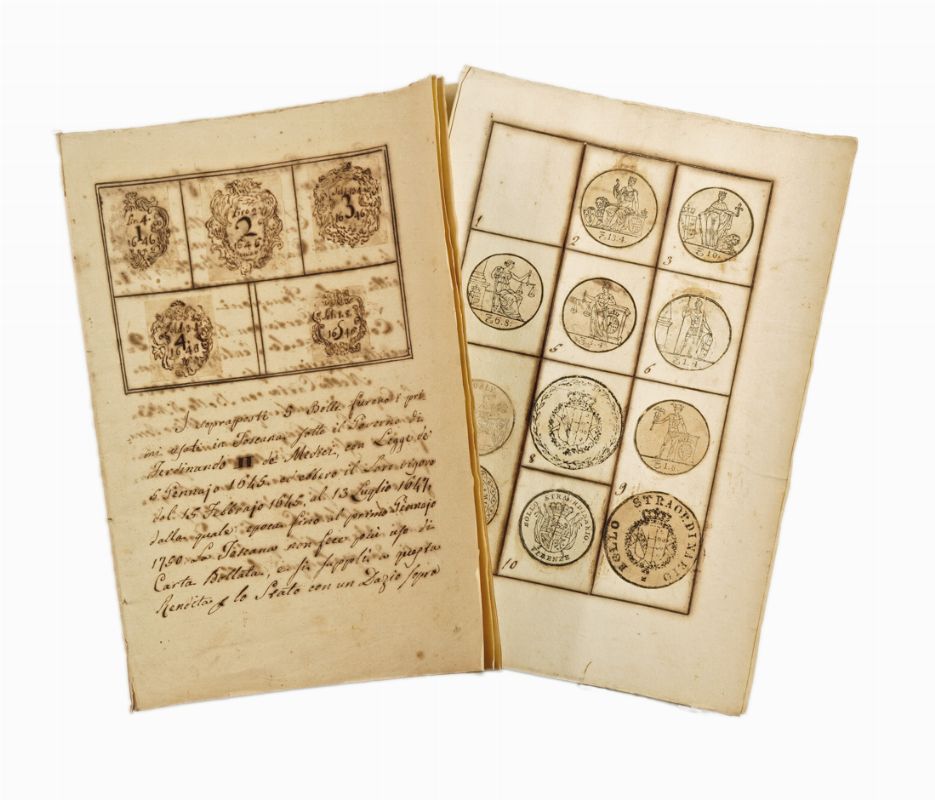 1
1646
2
1646
3
1646
4.
1646
5
1646
I sopraposti 5 Bolli furono i pri
mi usati in Toscana sotto il Governo di
Ferdinando II de Medici, con Legge de'
6 Gennajo 1645. ed ebbero il Loro vigore
dal 15 Febbrajo 1645. al 13 Luglio 1647.
dalla quale epoca fino al primo Gennajo
1750 La Toscana non fece più uso di
Carta Bollata, e si supplì a questa
Rendita lo Stato con un Dazio sopra
1
2
£.13.4.
3
£.10.
£.6.8.
5
6
£.1.4.
8
£.1.8.
9
BOLLO STRAORDINARIO
FIRENZE
10
BOLLO STRAORDINARIO